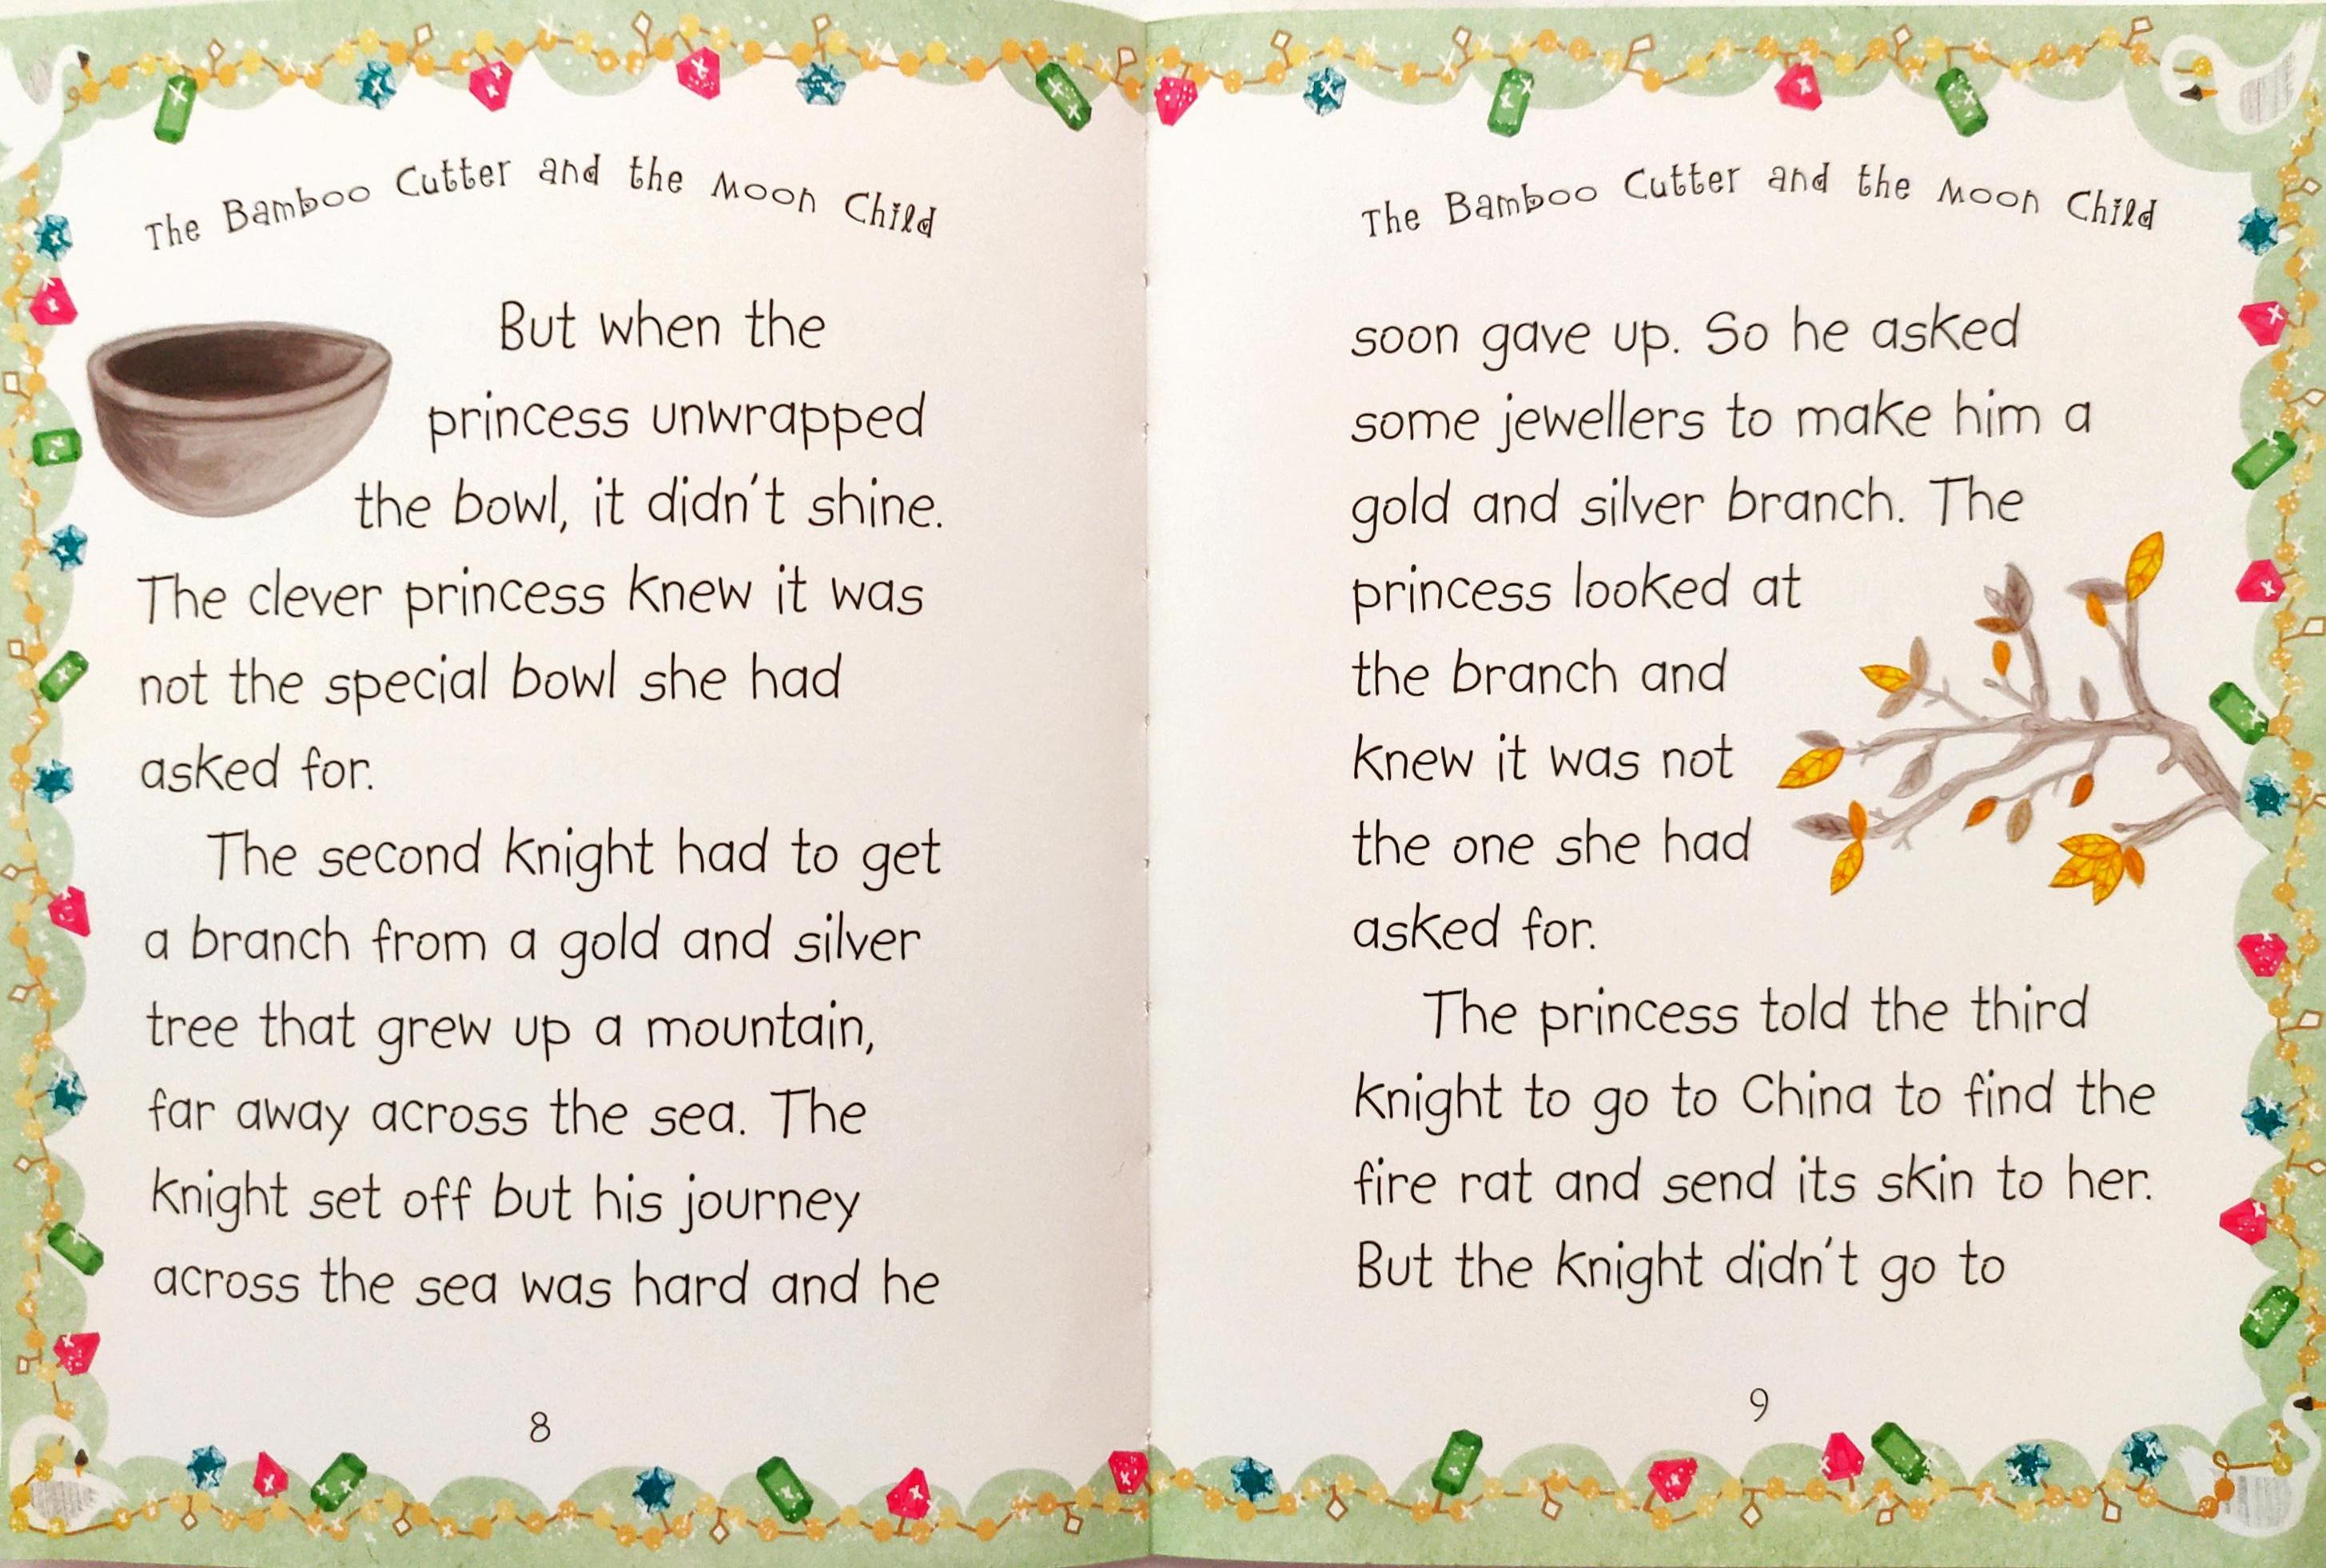 The Bamboo Cutter and the Moon Child
But when the
princess unwrapped
the bowl, it didn't shine.
The clever princess knew it was
not the special bowl she had
asked for.
The second knight had to get
a branch from a gold and silver
tree that grew up a mountain,
far away across the sea. The
knight set off but his journey
across the sea was hard and he
8
The Bamboo Cutter and the Moon Child
soon gave up. So he asked
some jewellers to make him a
gold and silver branch. The
princess looked at
the branch and
knew it was not
the one she had
asked for.
The princess told the third
knight to go to China to find the
fire rat and send its skin to her.
But the knight didn't go to
9